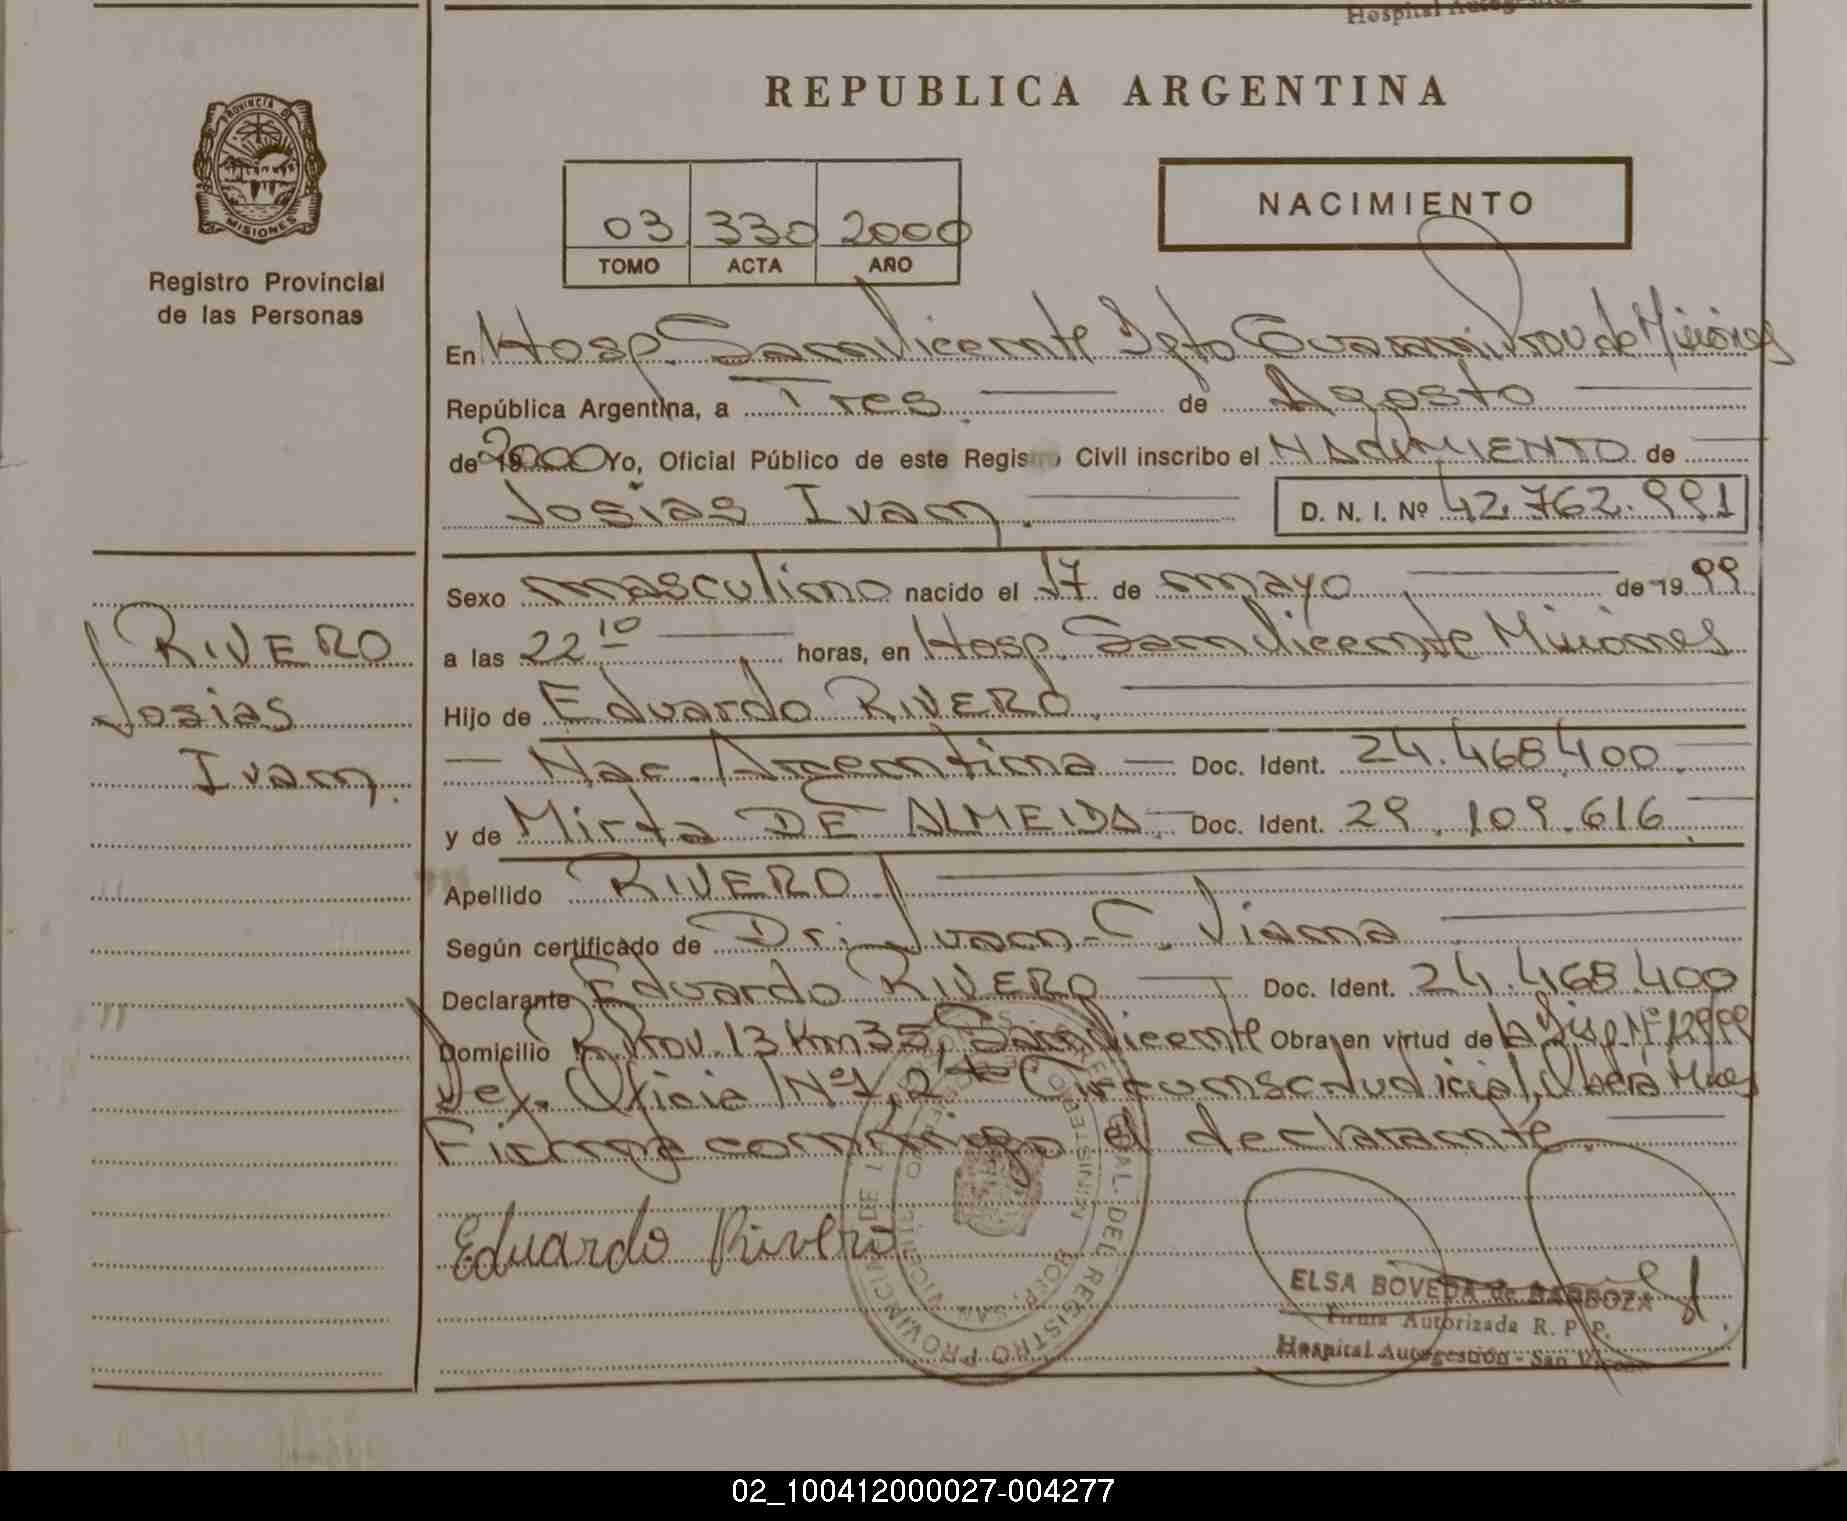 Hospital Autogestión
REPUBLICA ARGENTINA
PROVINCIA DE
MISIONES
Registro Provincial
de las Personas
03 330 2000
TOMO ACTA AÑO
NACIMIENTO
En Hosp. San Vicente Dpto Guarani Prov de Misiones
República Argentina, a Tres de Agosto
de 2000 Yo, Oficial Público de este Registro Civil inscribo el NACIMIENTO de
Josias Ivan. D. N. I. Nº 42.762.991
Sexo masculino nacido el 17 de mayo de 1999
a las 22 10 horas, en Hosp. San Vicente Misiones
Hijo de Eduardo RIVERO
Nac. Argentina Doc. Ident. 24.468.400
y de Mirta DE ALMEIDA Doc. Ident. 29.109.616
Apellido RIVERO
Según certificado de Dr. Juan C. Viana
Declarante Eduardo RIVERO Doc. Ident. 24.468.400
Domicilio R. Prov. 13 Km 35, San Vicente Obra en virtud de la Disp. Nº
Def. Oficia Nº 1, 2 Circunsc. Judicial, Oberá Mnes
Firma conmigo el declarante.
RIVERO
Josias
Ivan.
Eduardo Rivero
ELSA BOVEDA de BARBOZA
Firma Autorizada R. P. P.
Hospital Autogestión - San Vicente
02_100412000027-004277